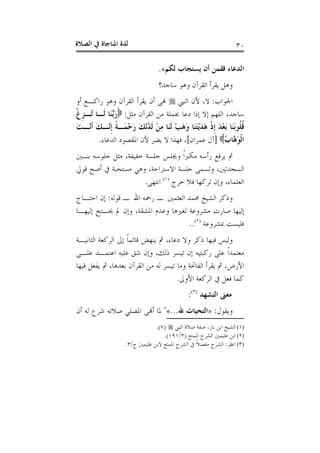 ٣٠ لذة المناجاة في الصلاة
الدعاء فقمن أن يستجاب لكم».
وهل يقرأ القرآن وهو ساجد؟
الجواب: لا، لأن النبي ﷺ نهى أن يقرأ القرآن وهو راكـــع أو
ساجد، اللهم إلا إذا دعا بجملة من القرآن مثل: ﴿رَبَّنَا لَـــا تُـــزِغْ
قُلُوبَنَا بَعْدَ إِذْ هَدَيْتَنَا وَهَبْ لَنَا مِنْ لَدُنْكَ رَحْـــمَـــةً إِنَّـــكَ أَنْـــتَ
الْوَهَّابُ﴾ [آل عمران]، فهذا لا يضر لأن المقصود الدعاء.
ثم يرفع رأسه مكبراً ويجلس جلسة خفيفة، مثل جلوسه بـــين
السجدتين، وتسمى جلسة الاستراحة، وهي مستحبة في أصح قولي
العلماء، وإن تركها فلا حرج (١) انتهى.
وذكر الشيخ محمد العثيمين ــ رحمه الله ــ قوله: إن احتـــاج
إليها صارت مشروعة لغيرها وعدم المشقة، وإن لم يحـــتج إليهـــا
فليست بمشروعة (٢)..
وليس فيها ذكر ولا دعاء، ثم ينهض قائماً إلى الركعة الثانيـــة
معتمداً على ركبتيه إن تيسر ذلك، وإن شق عليه اعتمـــد علـــى
الأرض، ثم يقرأ الفاتحة وما تيسر له من القرآن بعدها، ثم يفعل فيها
كما فعل في الركعة الأولى.
معنى التشهد (٣):
ويقول: «التحيات لله...» لما أنهى المصلي صلاته شرع له أن
(١) الشيخ ابن باز، صفة صلاة النبي ﷺ (٧).
(٢) ابن عثيمين الشرح الممتع (١٩١/٣).
(٣) انظر: الشرح مفصلاً في الشرح الممتع لابن عثيمين ج/٣.